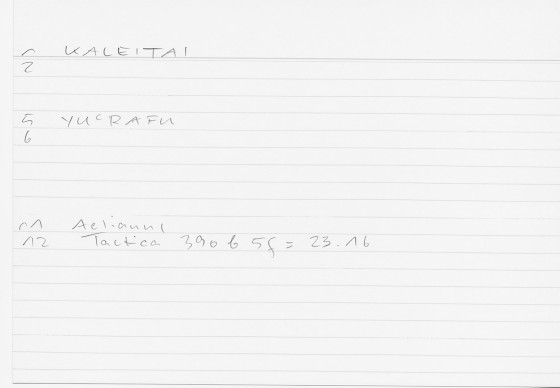 1 KALEITAI
2
5 YUCRAFU
6
11 Aelianus
12 Tactica 390 b 5f = 23.16